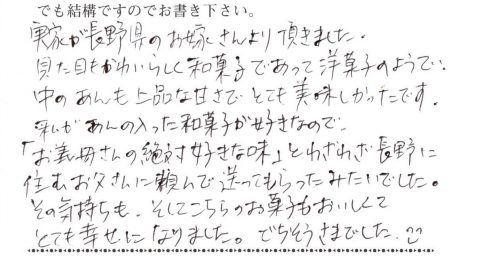 でも結構ですのでお書き下さい。
実家が長野県のお嫁さんより頂きました。
見た目もかわいらしく和菓子であって洋菓子のようで、
中のあんも上品な甘さでとても美味しかったです。
私があんの入った和菓子が好きなので、
「お義母さんの絶対好きな味」とわざわざ長野に
住むお父さんに頼んで送ってもらったみたいでした。
その気持ちも、そしてこちらのお菓子もおいしくて
とても幸せになりました。ごちそうさまでした。